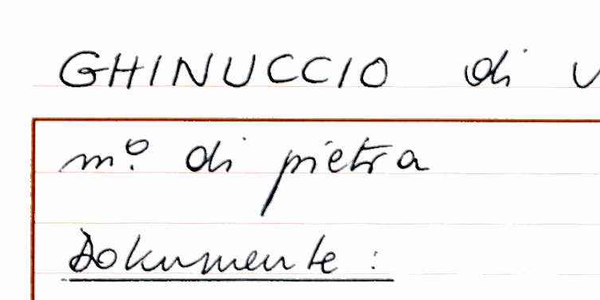 GHINUCCIO di
m° di pietra
Dokumente: